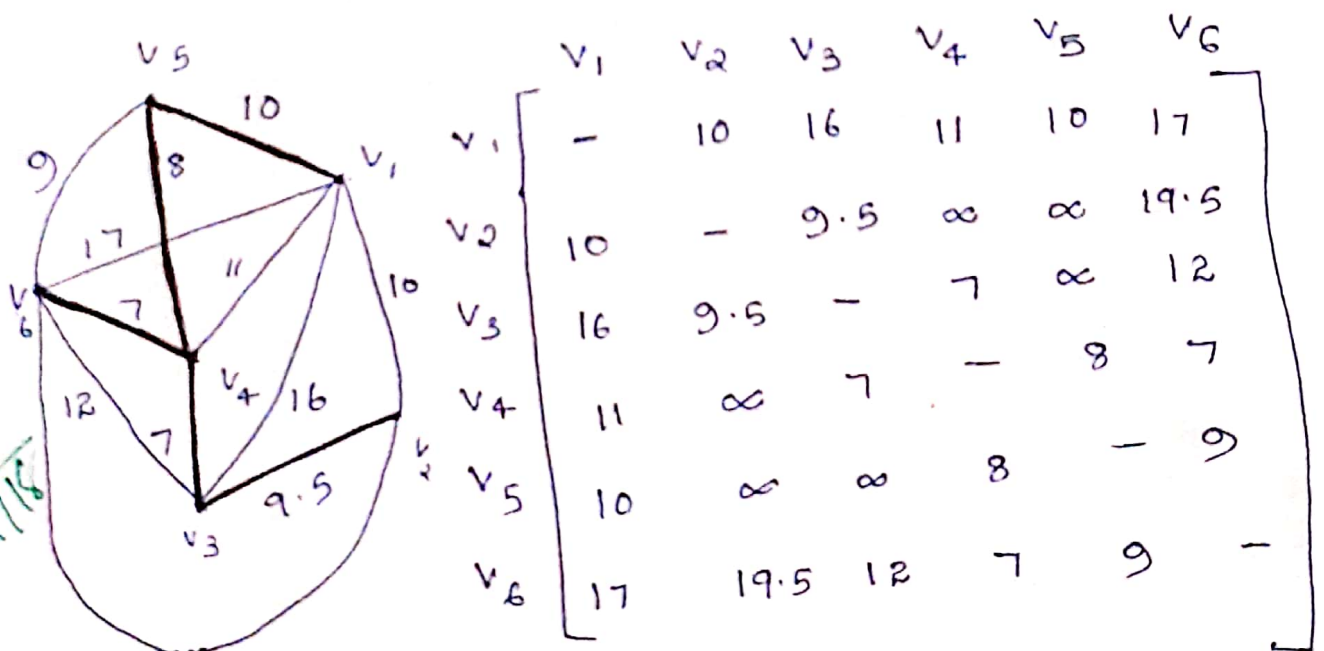 V5
10
9
8
V1
17
11
10
V6
7
V4
16
12
7
V2
9.5
V3
V1 V2 V3 V4 V5 V6
V1 - 10 16 11 10 17
V2 10 - 9.5 ∞ ∞ 19.5
V3 16 9.5 - 7 ∞ 12
V4 11 ∞ 7 - 8 7
V5 10 ∞ ∞ 8 - 9
V6 17 19.5 12 7 9 -